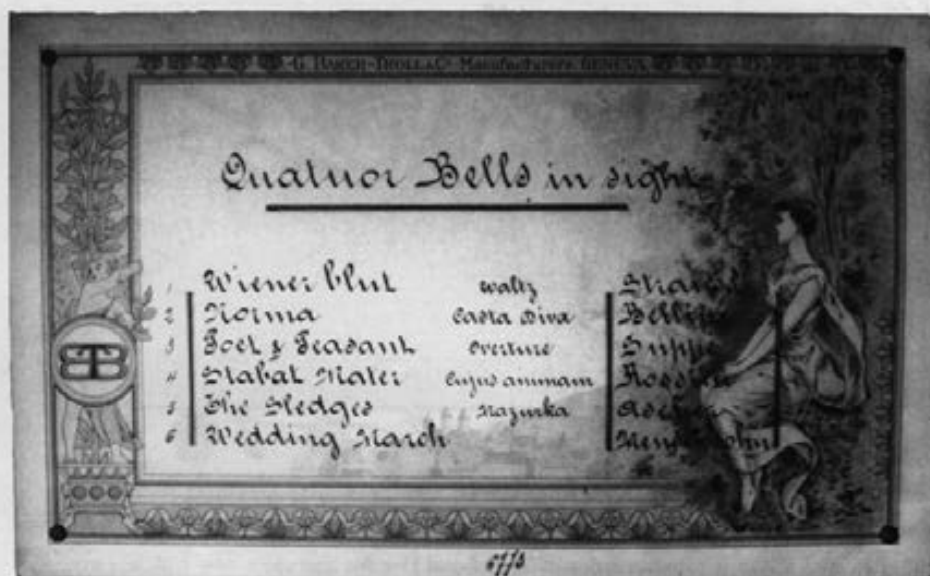 G. BAKER-TROLL & Co. Manufacturers GENEVA
Quatuor Bells in sight
1 Wiener blut waltz Strauss
2 Norma Casta Diva Bellini
3 Poet & Peasant Overture Suppé
4 Stabat Mater Cujus animam Rossini
5 The Sledges Mazurka Ascher
6 Wedding March Mendelssohn